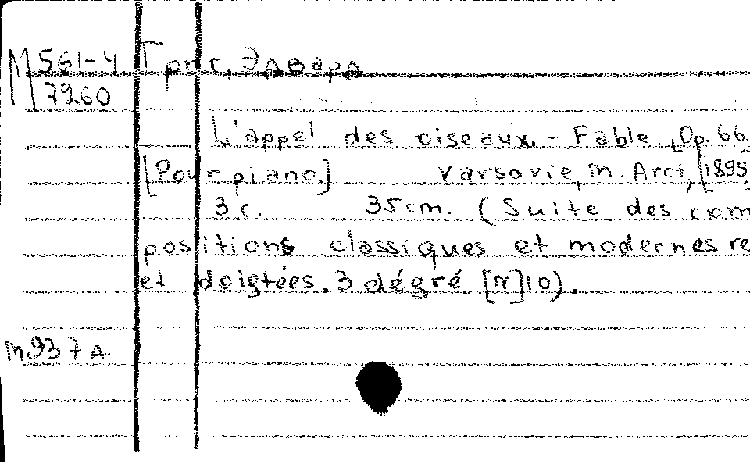 М 561-4 Григ, Эдвард
7260
L'appel des oiseaux. - Fable, Op. 66
[Pour piano.] Varsovie, m. Arct, [1895
3 c. 35 cm. (Suite des com
positions classiques et modernes re
et doigtées. 3 dégré [N]10).
m937A